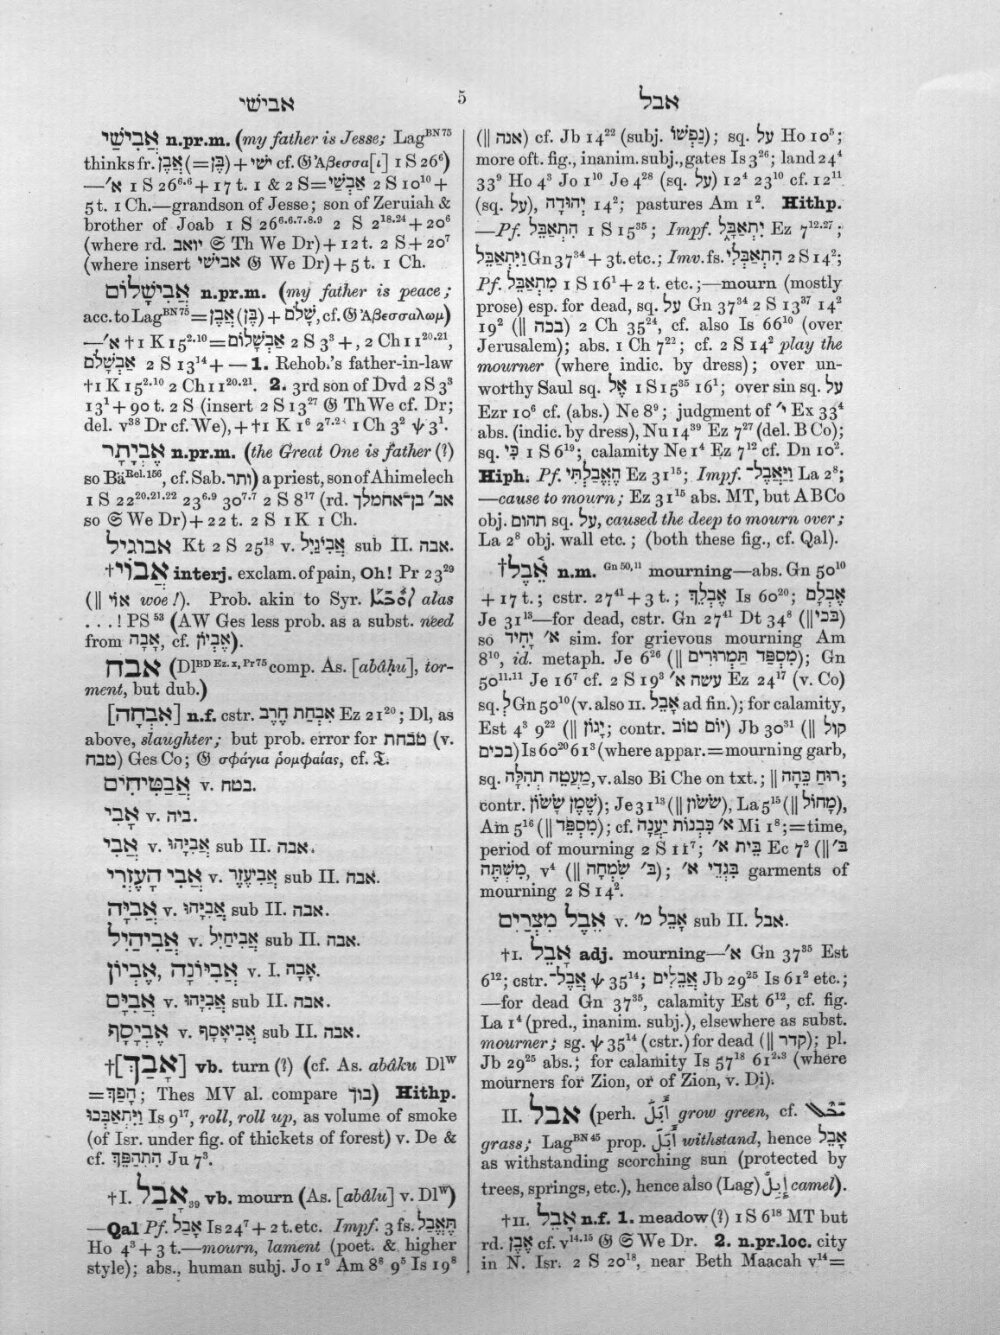 אבישי
5
אבל
אֲבִישַׁי n.pr.m. (my father is Jesse; Lag BN 75
thinks fr. אֲבֶן(=בֶּן)+יִשַׁי cf. 𝔊 Ἀβεσσα[ι] 1 S 26⁶)
—א׳ 1 S 26⁶·⁶+17 t. 1 & 2 S=אַבְשַׁי 2 S 10¹⁰+
5 t. 1 Ch.—grandson of Jesse; son of Zeruiah &
brother of Joab 1 S 26⁶·⁶·⁷·⁸·⁹ 2 S 2¹⁸·²⁴+20⁶
(where rd. יואב 𝔖 Th We Dr)+12 t. 2 S+20⁷
(where insert אבישי 𝔊 We Dr)+5 t. 1 Ch.
אֲבִישָׁלוֹם n.pr.m. (my father is peace;
acc. to Lag BN 75=אֲבֶן(בֶּן)+שָׁלֹם, cf. 𝔊 Ἀβεσσαλωμ)
—א׳ †1 K 15²·¹⁰=אַבְשָׁלוֹם 2 S 3³+, 2 Ch 11²⁰·²¹,
אַבְשָׁלֹם 2 S 13¹⁴+—1. Rehob.'s father-in-law
†1 K 15²·¹⁰ 2 Ch 11²⁰·²¹. 2. 3rd son of Dvd 2 S 3³
13¹+90 t. 2 S (insert 2 S 13²⁷ 𝔊 Th We cf. Dr;
del. v³⁸ Dr cf. We), +†1 K 1⁶ 2⁷·²⁸ 1 Ch 3² ψ 3¹.
אֶבְיָתָר n.pr.m. (the Great One is father (?)
so Bä Rel. 156, cf. Sab. ותר) a priest, son of Ahimelech
1 S 22²⁰·²¹·²² 23⁶·⁹ 30⁷·⁷ 2 S 8¹⁷ (rd. אב׳ בן־אחמלך
so 𝔖 We Dr)+22 t. 2 S 1 K 1 Ch.
אבוגיל Kt 2 S 25¹⁸ v. אֲבִיגַיִל sub II. אבה.
†אֲבוֹי interj. exclam. of pain, Oh! Pr 23²⁹
(‖ אוֹי woe!). Prob. akin to Syr. alas
. . . ! PS 53 (AW Ges less prob. as a subst. need
from אָבָה, cf. אֶבְיוֹן).
אבח (Dl BD Ez. x, Pr 75 comp. As. [abâḫu], tor-
ment, but dub.)
[אִבְחָה] n.f. cstr. אִבְחַת חָרֶב Ez 21²⁰; Dl, as
above, slaughter; but prob. error for טבחת (v.
טבח) Ges Co; 𝔊 σφάγια ῥομφαίας, cf. 𝔗.
אֲבַטִּיחִים v. בטח.
אָבִי v. ביה.
אֲבִי v. אֲבִיָּהוּ sub II. אבה.
אֲבִי הָעֶזְרִי v. אֲבִיעֶזֶר sub II. אבה.
אֲבִיָּה v. אֲבִיָּהוּ sub II. אבה.
אֲבִיהַיִל v. אֲבִיחַיִל sub II. אבה.
אֲבִיּוֹנָה, אֶבְיוֹן v. I. אָבָה.
אֲבִיָּם v. אֲבִיָּהוּ sub II. אבה.
אֶבְיָסָף v. אֲבִיאָסָף sub II. אבה.
†[אָבַךְ] vb. turn (?) (cf. As. abâku Dl W
=הָפַךְ; Thes MV al. compare בוך) Hithp.
וַיִּתְאַבְּכוּ Is 9¹⁷, roll, roll up, as volume of smoke
(of Isr. under fig. of thickets of forest) v. De &
cf. הִתְהַפֵּךְ Ju 7³.
†I. אָבַל₃₉ vb. mourn (As. [abâlu] v. Dl W)
—Qal Pf. אָבַל Is 24⁷+2 t. etc. Impf. 3 fs. תֶּאֱבַל
Ho 4³+3 t.—mourn, lament (poet. & higher
style); abs., human subj. Jo 1⁹ Am 8⁸ 9⁵ Is 19⁸
(‖ אנה) cf. Jb 14²² (subj. נַפְשׁוֹ); sq. עַל Ho 10⁵;
more oft. fig., inanim. subj., gates Is 3²⁶; land 24⁴
33⁹ Ho 4³ Jo 1¹⁰ Je 4²⁸ (sq. עַל) 12⁴ 23¹⁰ cf. 12¹¹
(sq. עַל), יְהוּדָה 14²; pastures Am 1². Hithp.
—Pf. הִתְאַבֵּל 1 S 15³⁵; Impf. יִתְאַבָּל Ez 7¹²·²⁷;
וַיִּתְאַבֵּל Gn 37³⁴+3 t. etc.; Imv. fs. הִתְאַבְּלִי 2 S 14²;
Pf. מִתְאַבֵּל 1 S 16¹+2 t. etc.;—mourn (mostly
prose) esp. for dead, sq. עַל Gn 37³⁴ 2 S 13³⁷ 14²
19² (‖ בכה) 2 Ch 35²⁴, cf. also Is 66¹⁰ (over
Jerusalem); abs. 1 Ch 7²²; cf. 2 S 14² play the
mourner (where indic. by dress); over un-
worthy Saul sq. אֶל 1 S 15³⁵ 16¹; over sin sq. עַל
Ezr 10⁶ cf. (abs.) Ne 8⁹; judgment of י׳ Ex 33⁴
abs. (indic. by dress), Nu 14³⁹ Ez 7²⁷ (del. B Co);
sq. כִּי 1 S 6¹⁹; calamity Ne 1⁴ Ez 7¹² cf. Dn 10².
Hiph. Pf. הֶאֱבַלְתִּי Ez 31¹⁵; Impf. וַיַּאֲבֶל־ La 2⁸;
—cause to mourn; Ez 31¹⁵ abs. MT, but A B Co
obj. תהום sq. עַל, caused the deep to mourn over;
La 2⁸ obj. wall etc.; (both these fig., cf. Qal).
†אֵבֶל n.m. Gn 50, 11 mourning—abs. Gn 50¹⁰
+17 t.; cstr. 27⁴¹+3 t.; אֶבְלֵךְ Is 60²⁰; אֶבְלָם
Je 31¹³—for dead, cstr. Gn 27⁴¹ Dt 34⁸ (‖בכי)
so א׳ יָחִיד sim. for grievous mourning Am
8¹⁰, id. metaph. Je 6²⁶ (‖ מִסְפַּד תַּמְרוּרִים); Gn
50¹¹·¹¹ Je 16⁷ cf. 2 S 19³ עשה א׳ Ez 24¹⁷ (v. Co)
sq. לְ Gn 50¹⁰ (v. also II. אָבֵל ad fin.); for calamity,
Est 4³ 9²² (‖ יָגוֹן; contr. יוֹם טוֹב) Jb 30³¹ (‖ קול
בכים) Is 60²⁰ 61³ (where appar.=mourning garb,
sq. מַעֲטֵה תְהִלָּה, v. also Bi Che on txt.; ‖ רוּחַ כֵּהָה;
contr. שֶׁמֶן שָׂשׂוֹן); Je 31¹³ (‖ שׂשׂוֹן), La 5¹⁵ (‖ מָחוֹל),
Am 5¹⁶ (‖ מִסְפֵּד); cf. א׳ כִּבְנוֹת יַעֲנָה Mi 1⁸;=time,
period of mourning 2 S 11⁷; בֵּית א׳ Ec 7² (‖ ב׳
מִשְׁתֶּה, v⁴ (‖ ב׳ שִׂמְחָה); בִּגְדֵי א׳ garments of
mourning 2 S 14².
אֵבֶל מִצְרַיִם v. אָבֵל מ׳ sub II. אבל.
†I. אָבֵל adj. mourning—א׳ Gn 37³⁵ Est
6¹²; cstr. אֲבֶל־ ψ 35¹⁴; אֲבֵלִים Jb 29²⁵ Is 61² etc.;
—for dead Gn 37³⁵, calamity Est 6¹², cf. fig.
La 1⁴ (pred., inanim. subj.), elsewhere as subst.
mourner; sg. ψ 35¹⁴ (cstr.) for dead (‖ קדר); pl.
Jb 29²⁵ abs.; for calamity Is 57¹⁸ 61²·³ (where
mourners for Zion, or of Zion, v. Di).
II. אבל (perh. أَبَلَ grow green, cf.
grass; Lag BN 45 prop. أَبَلَ withstand, hence אָבֵל
as withstanding scorching sun (protected by
trees, springs, etc.), hence also (Lag) إِبِلٌ camel).
†II. אָבֵל n.f. 1. meadow (?) 1 S 6¹⁸ MT but
rd. אֶבֶן cf. v¹⁴·¹⁵ 𝔊 𝔖 We Dr. 2. n.pr.loc. city
in N. Isr. 2 S 20¹⁸, near Beth Maacah v¹⁴=